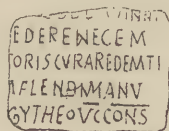 EDERENECEM
ORISCVRAREDEMTI
FLENDMMANV
GYTHEOVCCONS